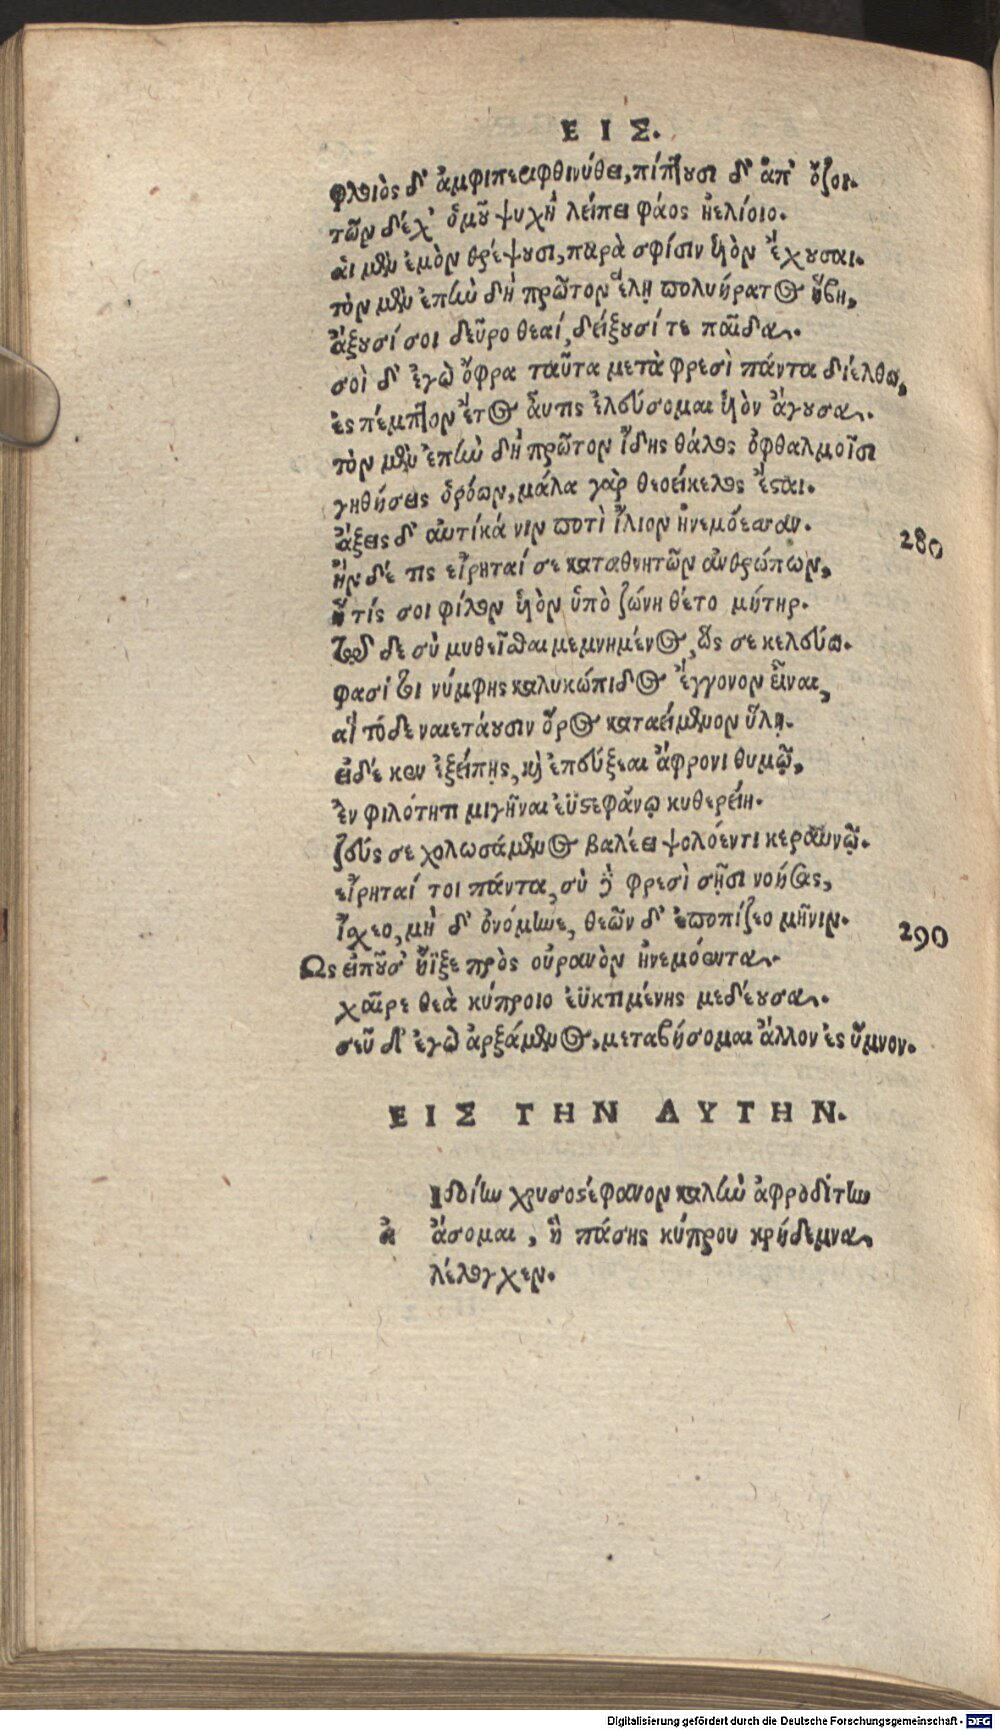 ΕΙΣ.
φλοιὸς δ' ἀμφιπεριφθινύθει, πίπτουσι δ' ἀπ' ὄζοι.
τῶν δέχ' ὁμοῦ ψυχὴ λείπει φάος ἠελίοιο.
ἁι μὲν ἐμὸν θρέψουσι, παρὰ σφίσιν ὑιὸν ἔχουσαι.
τὸν μὲν ἐπὴν δὴ πρῶτον ἕλῃ πολυήρατος ἥβη,
ἄξουσί σοι δεῦρο θεαί, δείξουσί τε παῖδα.
σοὶ δ' ἐγὼ ὄφρα ταῦτα μετὰ φρεσὶ πάντα διέλθω,
ἐς πέμπτον ἔτος ἄυτις ἐλεύσομαι ὑιὸν ἄγουσα.
τὸν μὲν ἐπὴν δὴ πρῶτον ἴδῃς θάλος ὀφθαλμοῖσι
γηθήσεις ὁρόων, μάλα γὰρ θεοείκελος ἔσται.
ἄξεις δ' αὐτίκά νιν ποτὶ ἴλιον ἠνεμόεσσαν. 280
ἢν δέ τις εἴρηταί σε καταθνητῶν ἀνθρώπων,
ἥ τίς σοι φίλον ὑιὸν ὑπὸ ζώνη θέτο μήτηρ.
τῷ δε σὺ μυθεῖσθαι μεμνημένος, ὥς σε κελεύω.
φασί τοι νύμφης καλυκώπιδος ἔγγονον εἶναι,
αἳ τόδε ναιετάουσιν ὄρος καταείμενον ὕλῃ.
εἰδέ κεν ἐξείπῃς, καὶ ἐπεύξεαι ἄφρονι θυμῷ,
ἐν φιλότητι μιγῆναι ἐϋστεφάνῳ κυθερείη.
ζεύς σε χολωσάμενος βαλέει ψολόεντι κεραυνῷ.
εἴρηταί τοι πάντα, σὺ δὲ φρεσὶ σῇσι νοήσας,
ἴσχεο, μὴ δ' ὀνόμηνε, θεῶν δ' ἐποπίζεο μῆνιν. 290
Ως εἰποῦσ' ἤϊξε πρὸς οὐρανὸν ἠνεμόεντα.
χαῖρε θεὰ κύπροιο ἐϋκτιμένης μεδέουσα.
σεῦ δ' ἐγὼ ἀρξάμενος, μεταβήσομαι ἄλλον ἐς ὕμνον.
ΕΙΣ ΤΗΝ ΑΥΤΗΝ.
Ιδοίην χρυσοστέφανον καλὴν ἀφροδίτην
ἀ ἄσομαι, ἣ πάσης κύπρου κρήδεμνα
λέλογχεν.
Digitalisierung gefördert durch die Deutsche Forschungsgemeinschaft - DFG